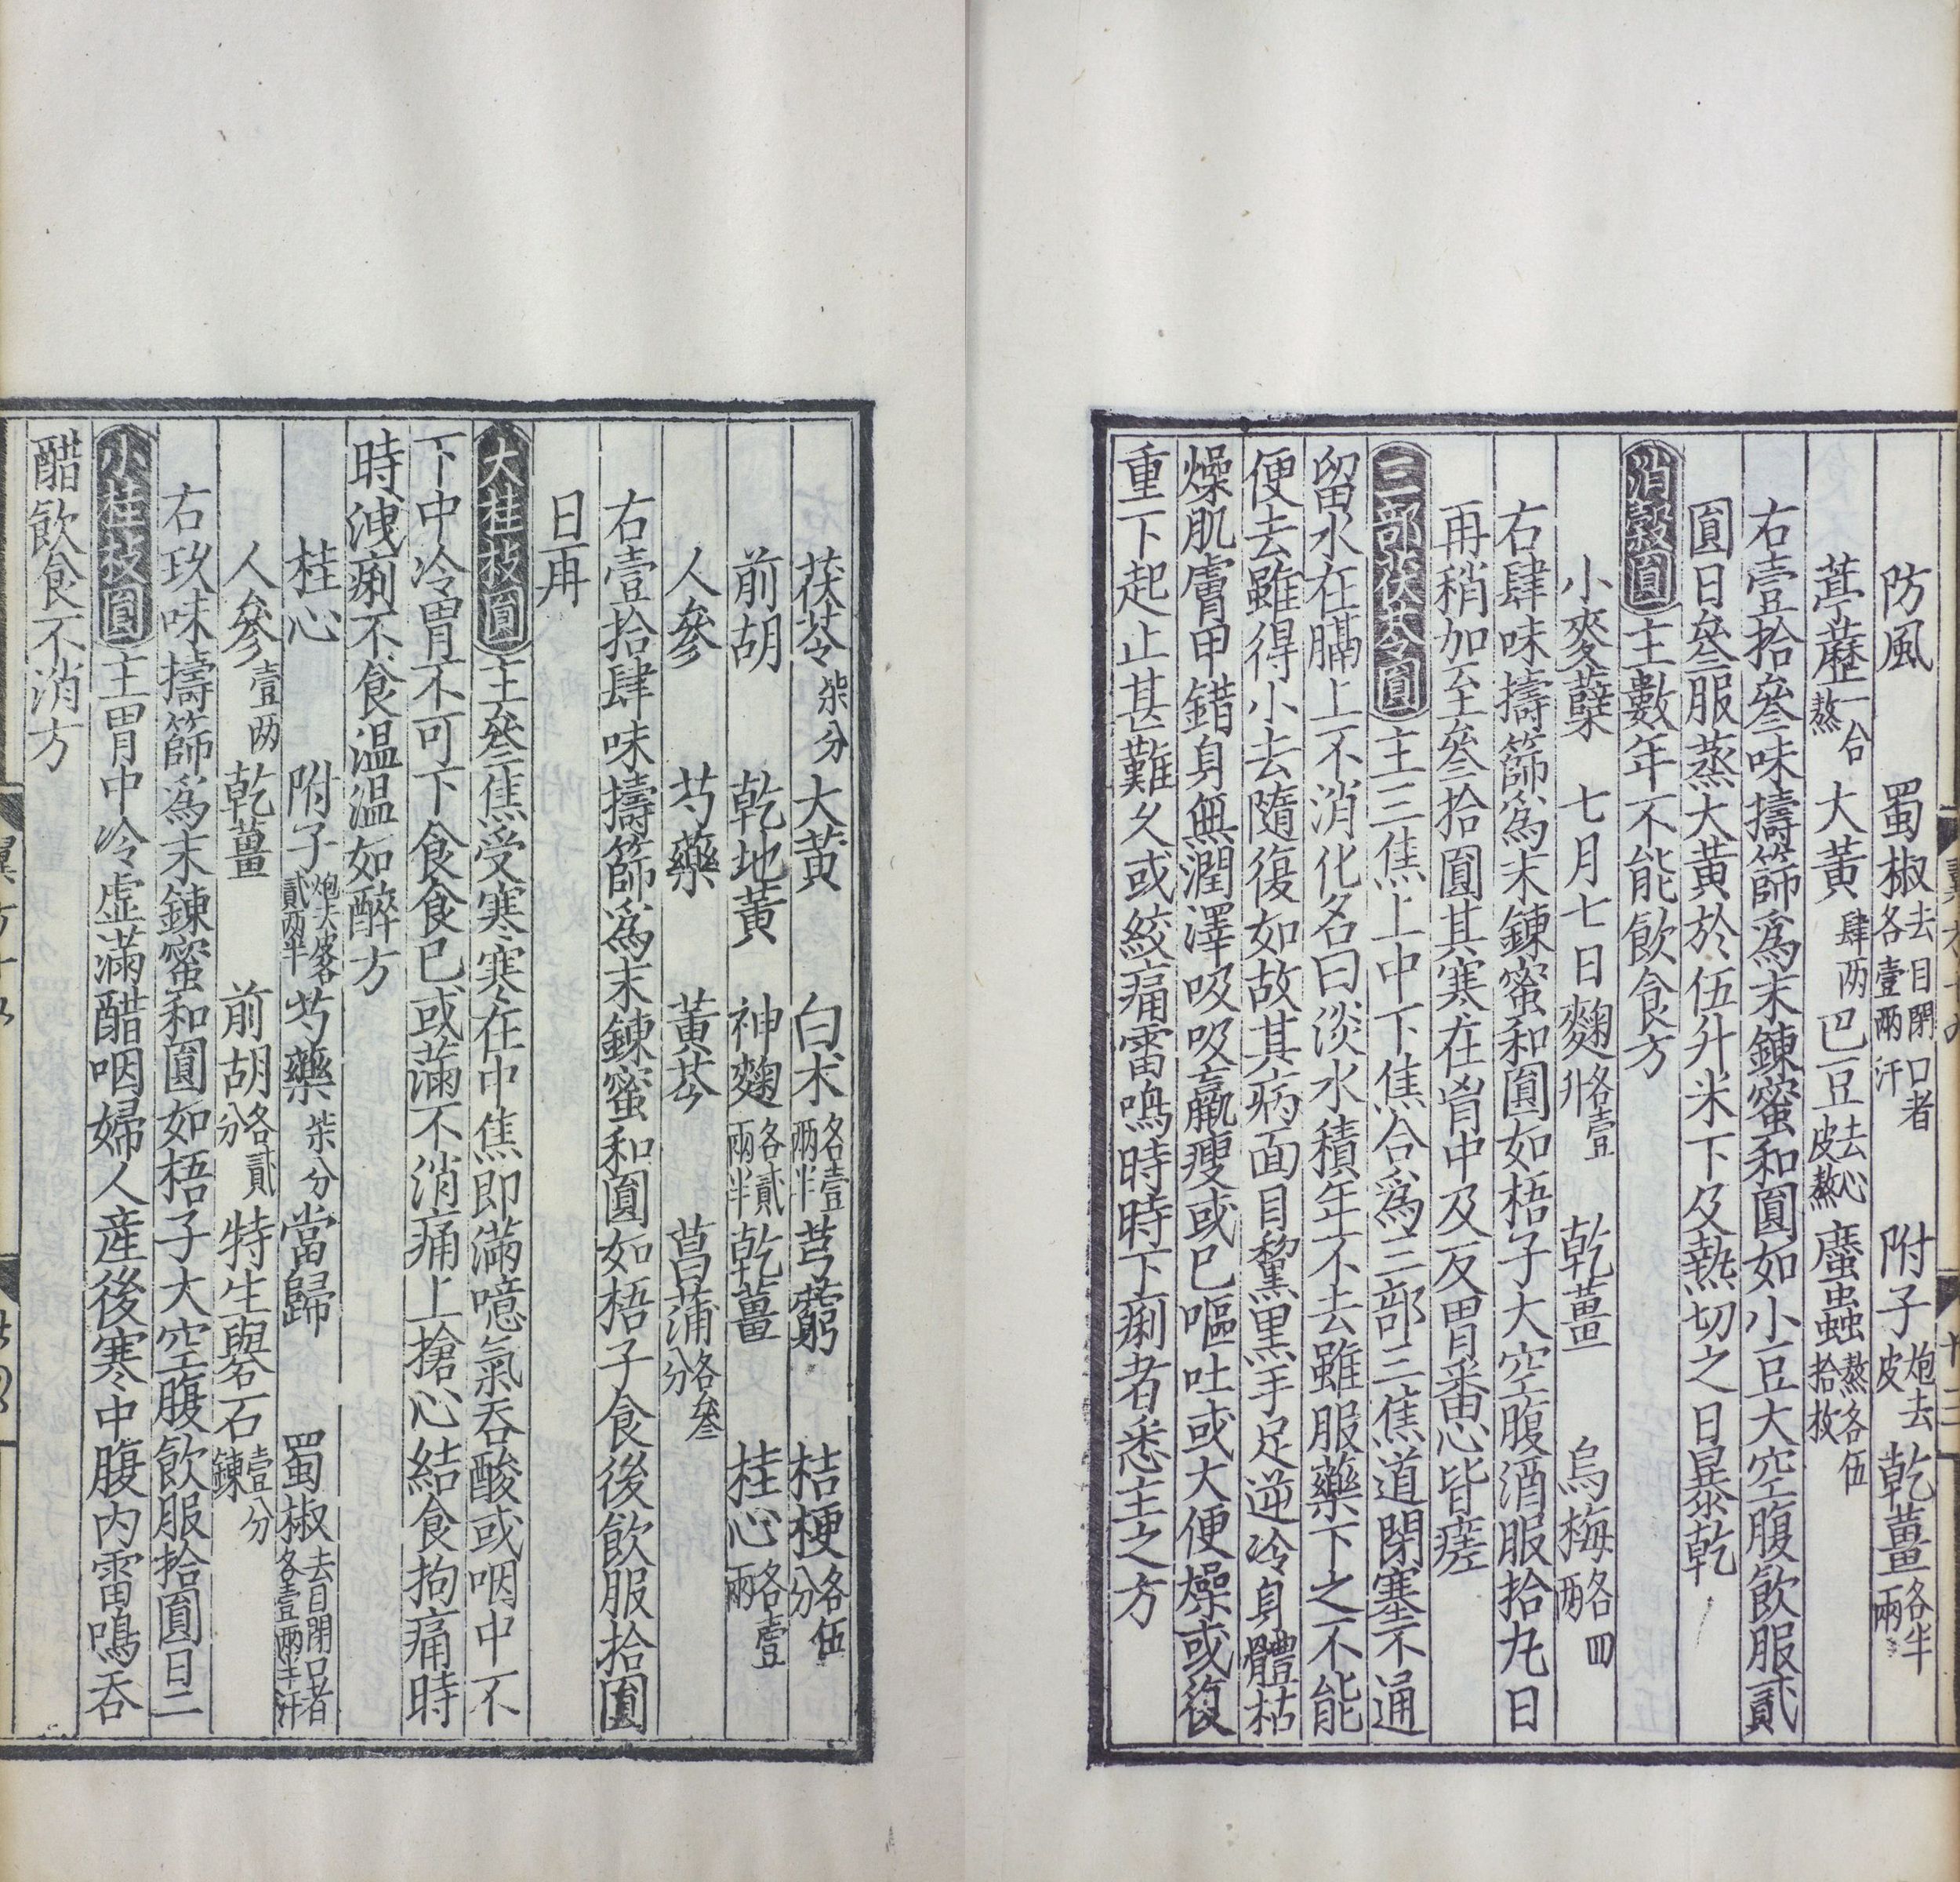 防風 蜀椒去目閉口者各壹兩汗 附子炮去皮 乾薑各半兩
葶藶一合熬 大黃肆两 巴豆去心皮熬 䗪蟲熬各伍拾枚
右壹拾叁味擣篩為末鍊蜜和圓如小豆大空腹飲服貳
圓日叁服蒸大黃於伍升米下及熱切之日暴乾
消穀圓主數年不能飲食方
小麥蘖 七月七日麴各壹升 乾薑 烏梅各四兩
右肆味擣篩為末鍊蜜和圓如梧子大空腹酒服拾丸日
再稍加至叁拾圓其寒在胷中及反胃番心皆瘥
三部茯苓圓主三焦上中下焦合為三部三焦道閉塞不通
留水在膈上不消化名曰淡水積年不去雖服藥下之不能
便去雖得小去隨復如故其病面目黧黑手足逆冷身體枯
燥肌膚甲錯身無潤澤吸吸羸瘦或已嘔吐或大便燥或復
重下起止甚難久或絞痛雷鳴時時下痢者悉主之方
茯苓柒分 大黃 白术各壹兩半 芎藭 桔梗各伍分
前胡 乾地黃 神麴各貳兩半 乾薑 桂心各壹兩
人參 芍藥 黃芩 菖蒲各叁分
右壹拾肆味擣篩為末鍊蜜和圓如梧子食後飲服拾圓
日再
大桂枝圓主叁焦受寒寒在中焦即滿噫氣吞酸或咽中不
下中冷胃不可下食食已或滿不消痛上搶心結食拘痛時
時洩痢不食温温如醉方
桂心 附子炮去皮各貳兩半 芍藥柒分 當歸 蜀椒去目閉口者各壹兩半汗
人參壹两 乾薑 前胡各貳分 特生礜石壹分鍊
右玖味擣篩為末鍊蜜和圓如梧子大空腹飲服拾圓日二
小桂枝圓主胃中冷虛滿醋咽婦人産後寒中腹内雷鳴吞
醋飲食不消方